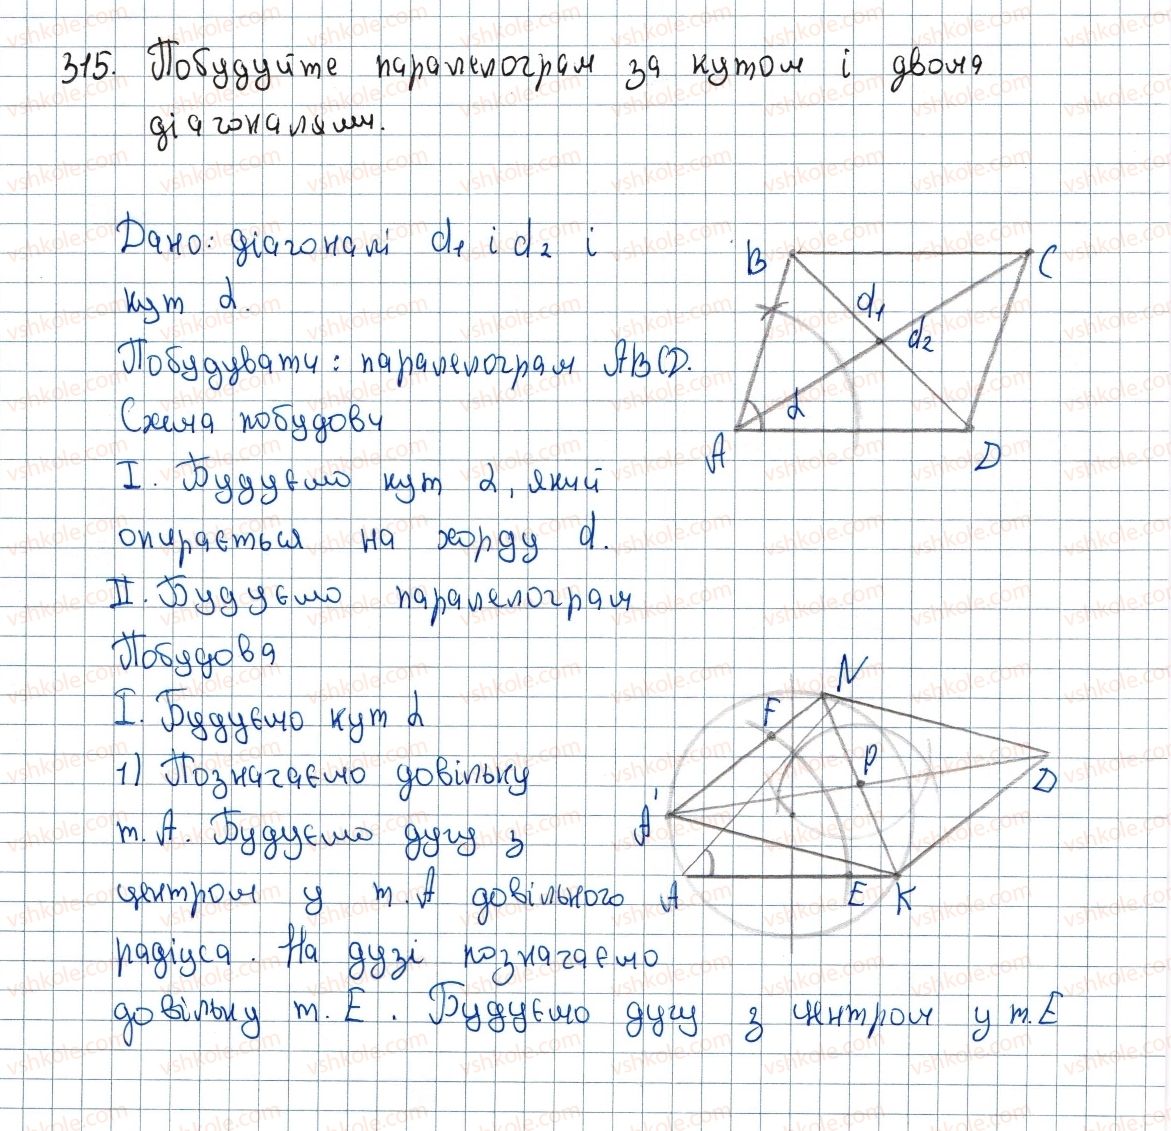 315. Побудуйте паралелограм за кутом і двома
діагоналями.
Дано: діагоналі d₁ і d₂ і
кут α.
Побудувати: паралелограм ABCD.
Схема побудови
I. Будуємо кут α, який
опирається на хорду d.
II. Будуємо паралелограм
Побудова
I. Будуємо кут α
1) Позначаємо довільну
т. A. Будуємо дугу з
центром у т. A довільного
радіуса. На дузі позначаємо
довільну т. E. Будуємо дугу з центром у т. E
B
C
d₁
d₂
α
A
D
N
F
P
D
A'
A
E
K
vshkole.com